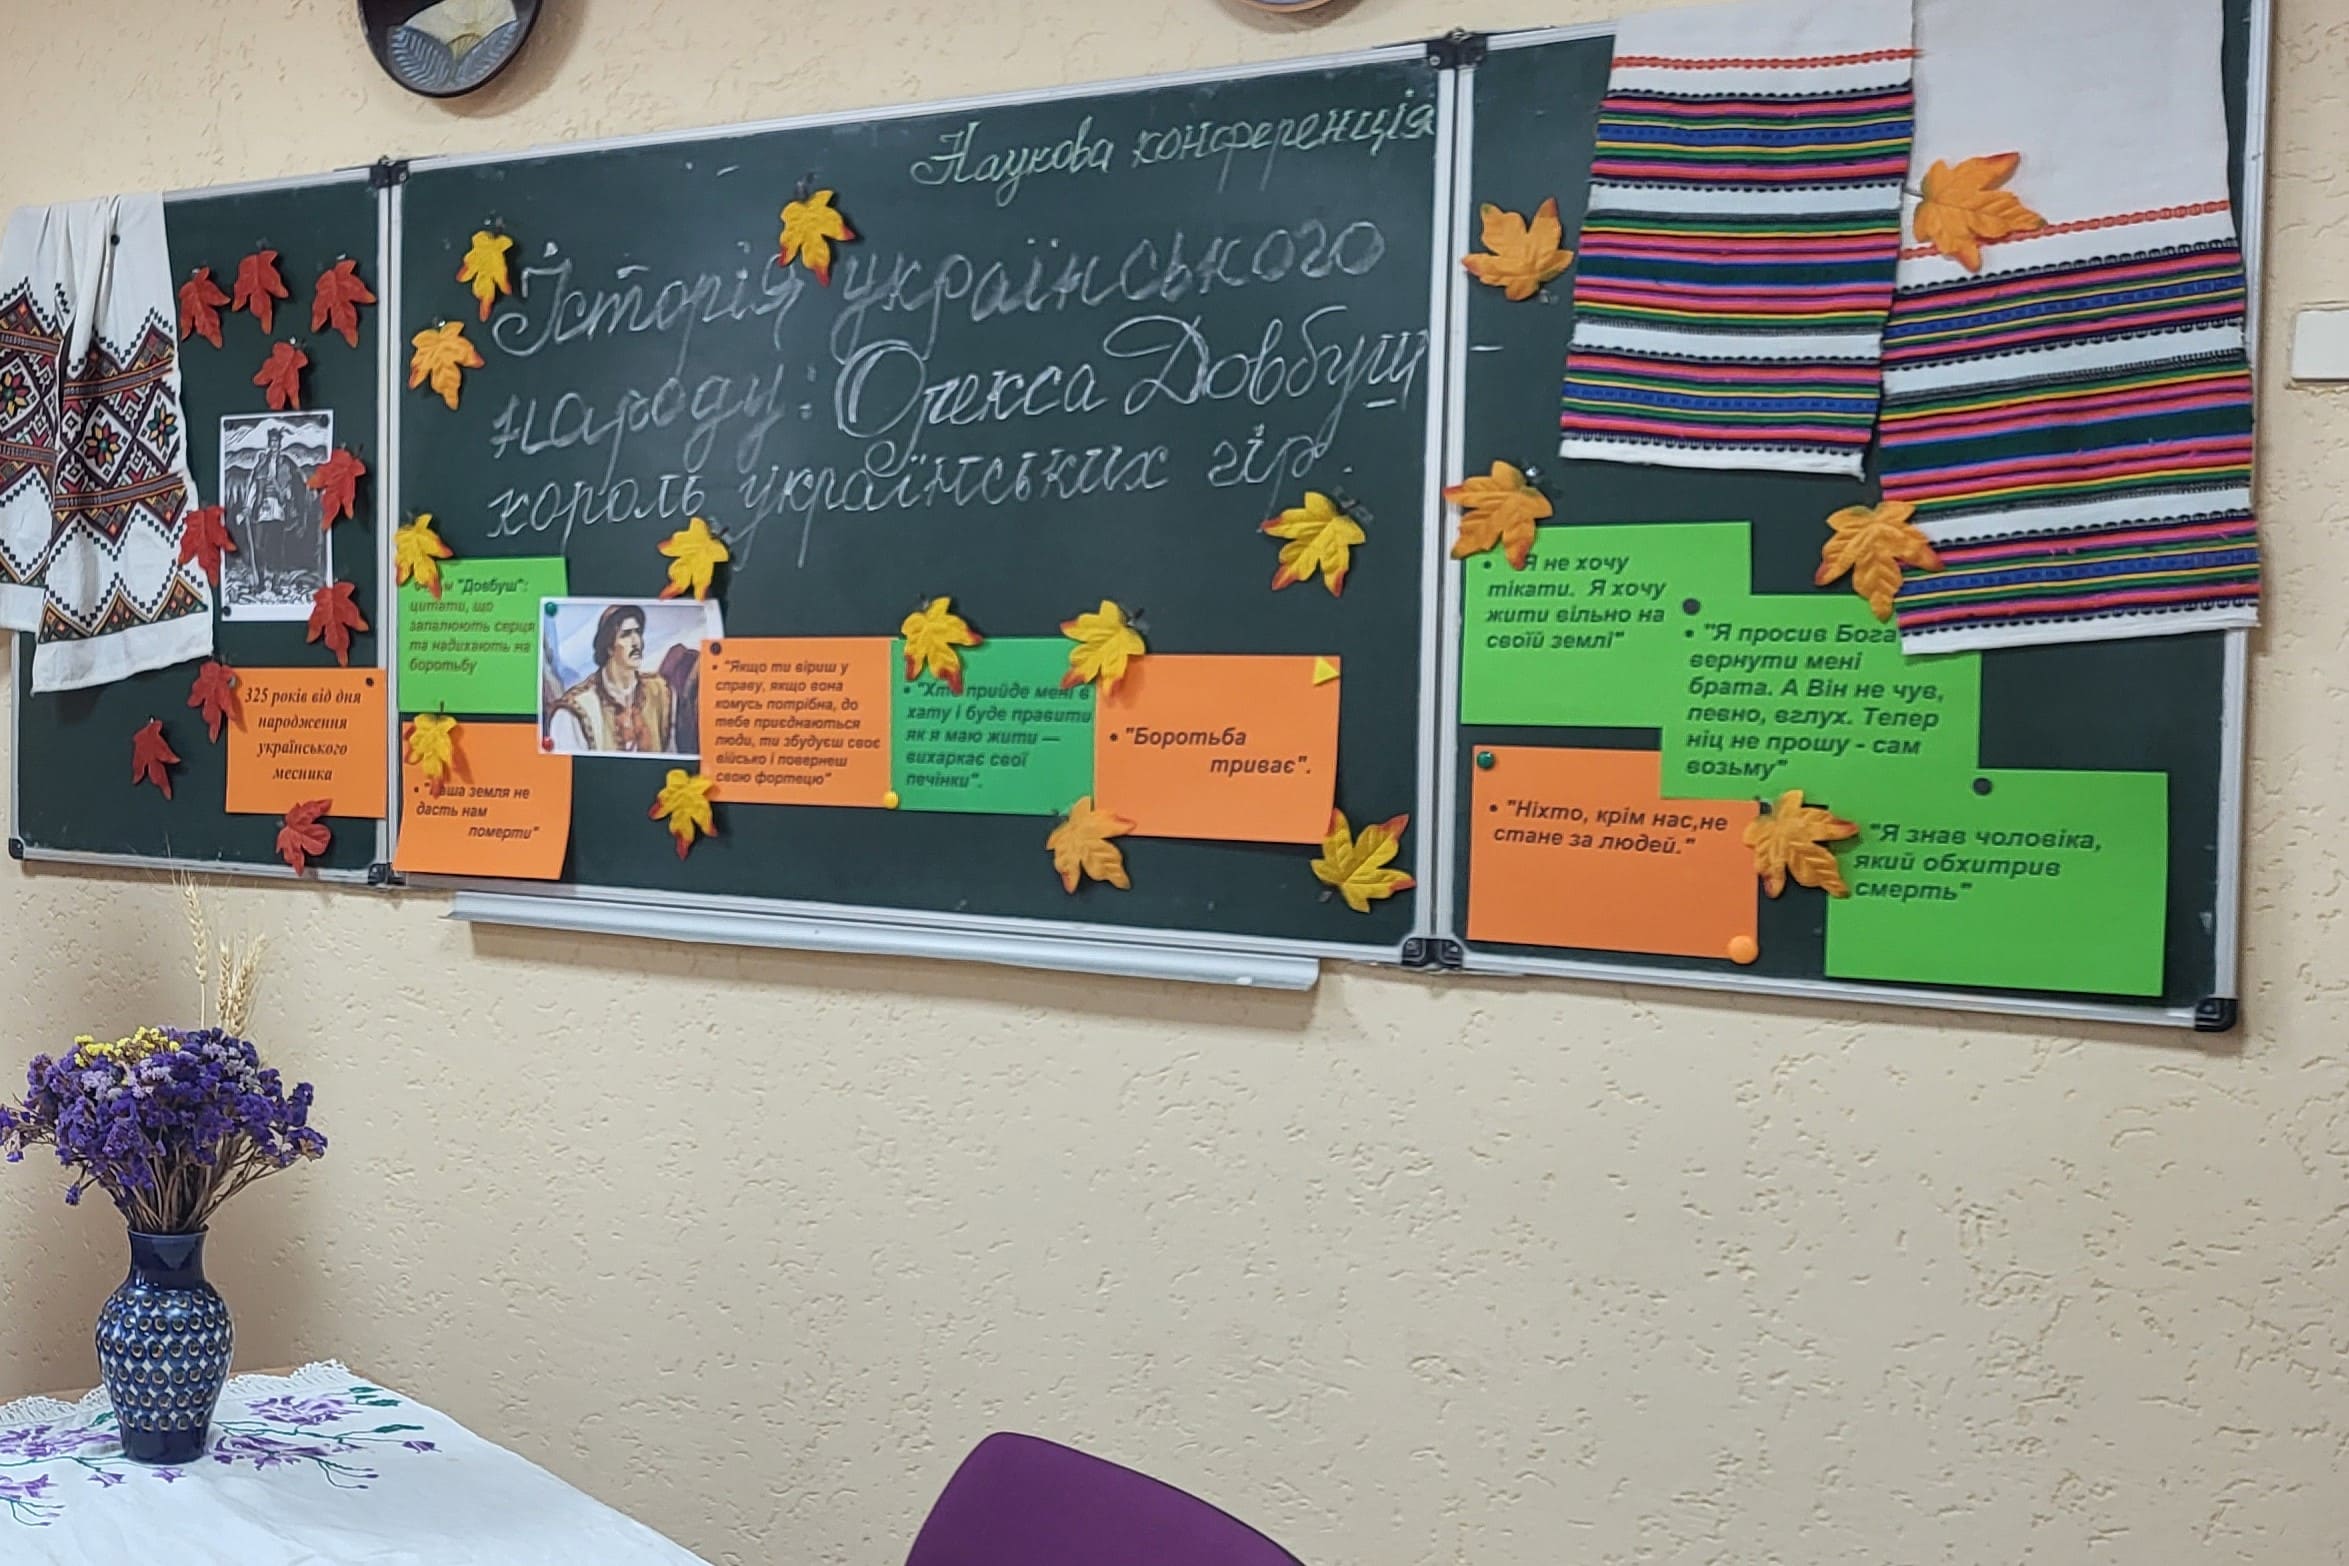 Наукова конференція
Історія українського
народу: Олекса Довбуш
король українських гір.
325 років від дня
народження
українського
месника
"Довбуш":
цитати, що
запалюють серця
та надихають на
боротьбу
• земля не
дасть нам
померти"
• "Якщо ти віриш у
справу, якщо вона
комусь потрібна, до
тебе приєднаються
люди, ти збудуєш своє
військо і повернеш
свою фортецю"
• "Хто прийде мені в
хату і буде правити
як я маю жити —
вихаркає свої
печінки".
• "Боротьба
триває".
• "Я не хочу
тікати. Я хочу
жити вільно на
своїй землі"
• "Я просив Бога
вернути мені
брата. А Він не чув,
певно, вглух. Тепер
ніц не прошу - сам
возьму"
• "Ніхто, крім нас,не
стане за людей."
"Я знав чоловіка,
який обхитрив
смерть"